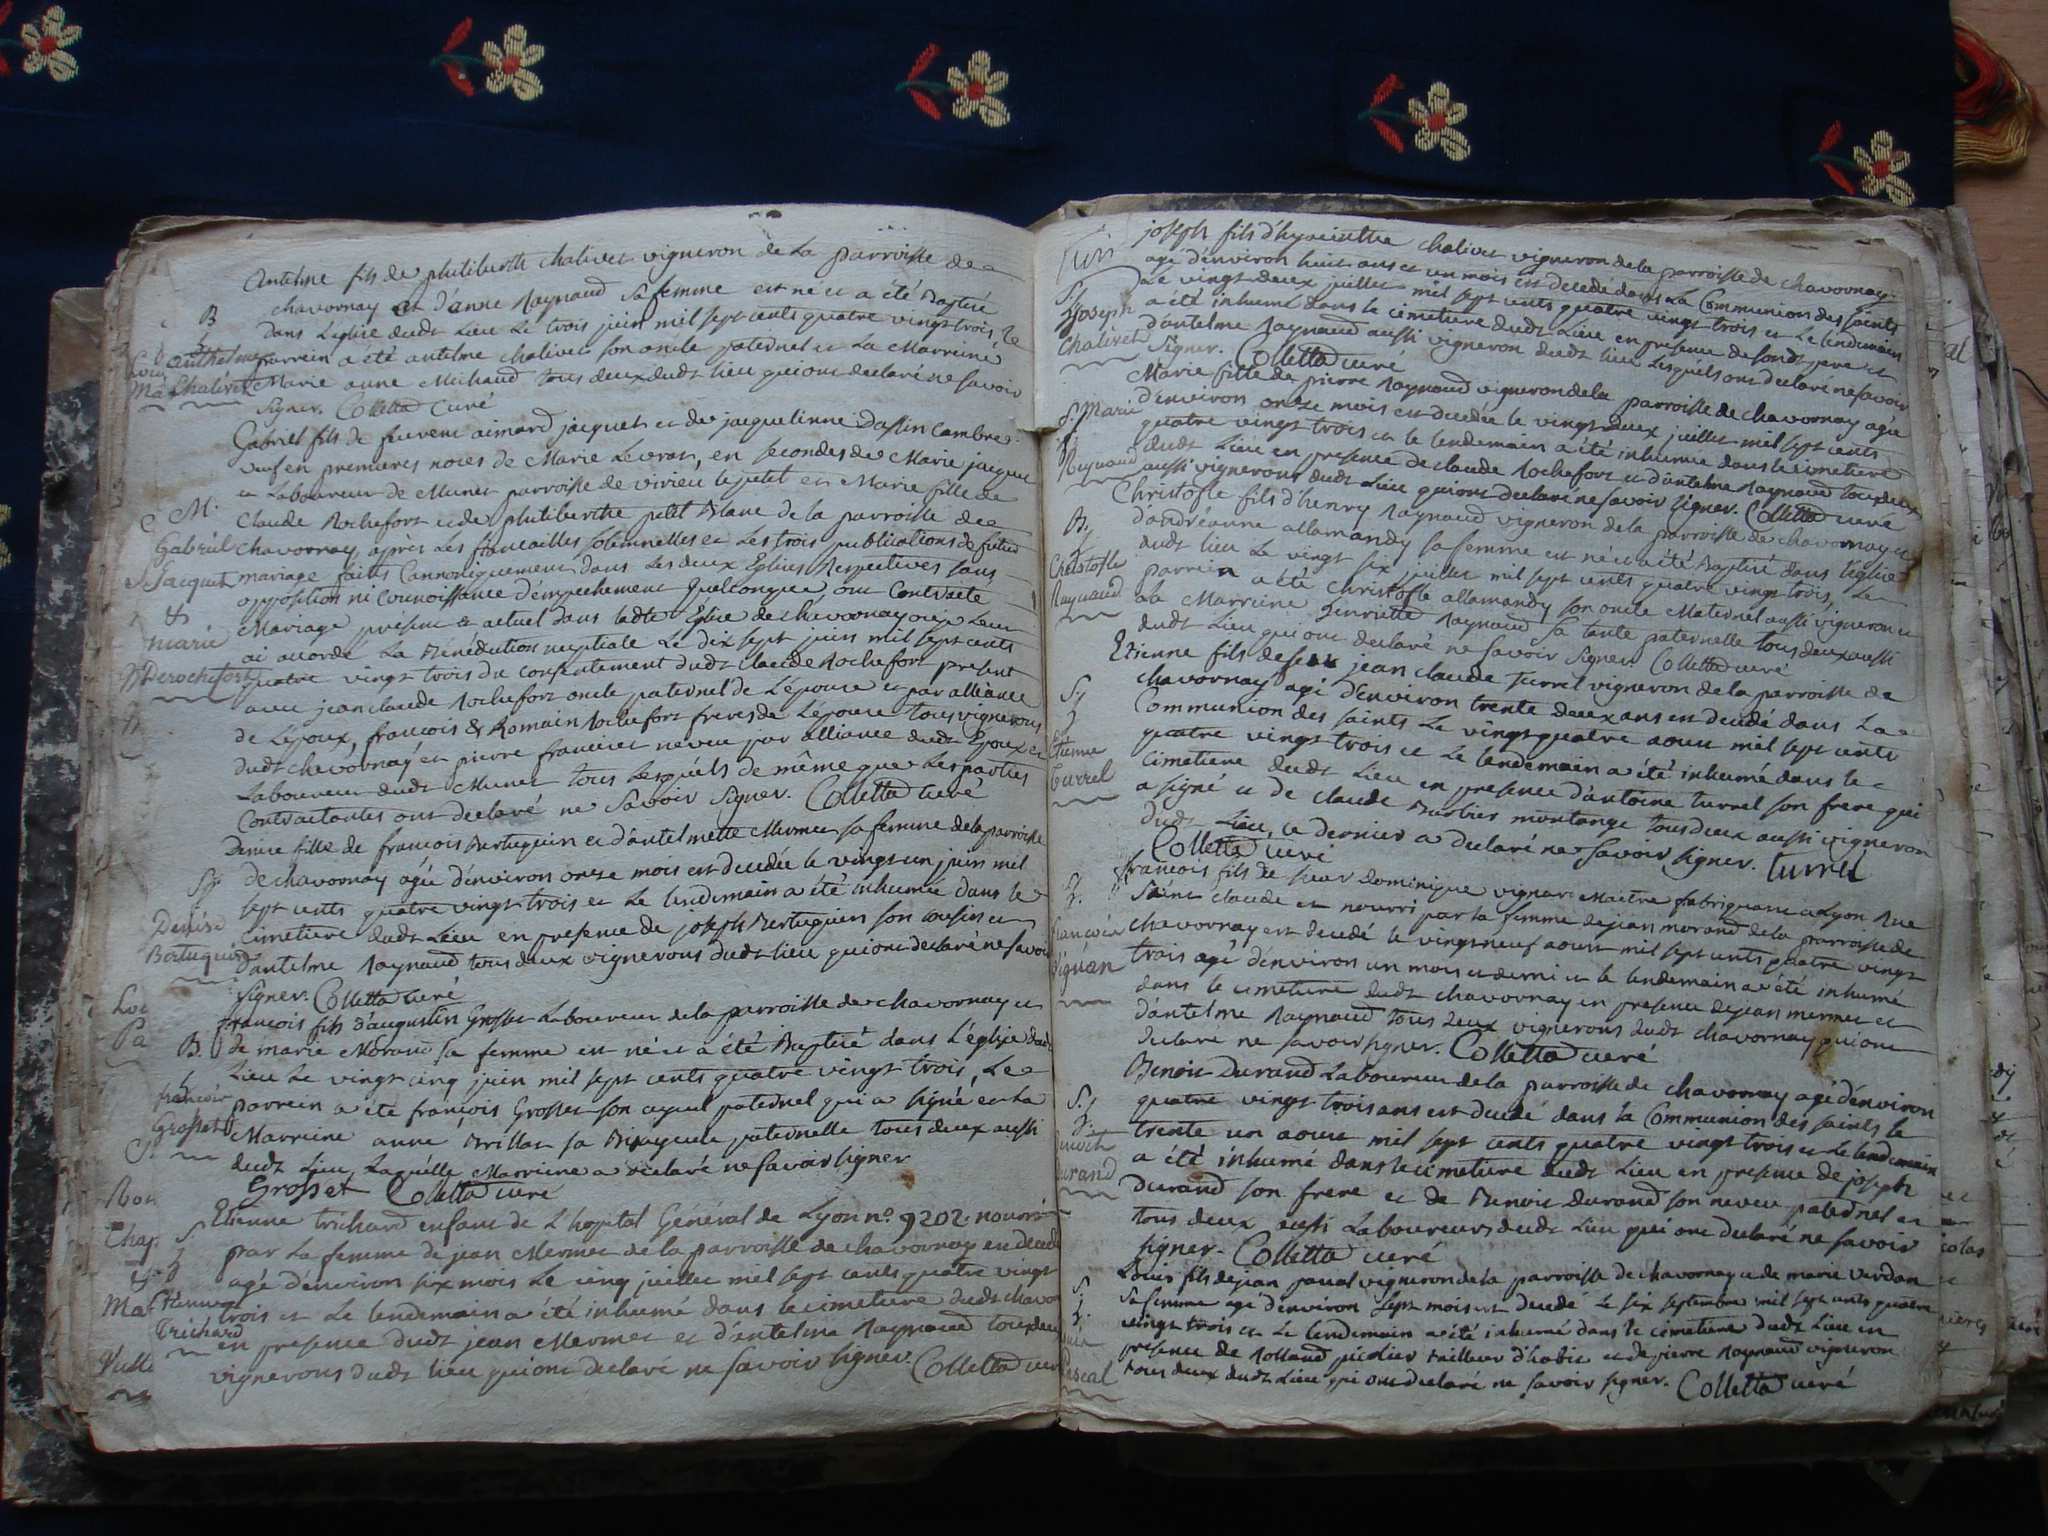 Antelme fils de philiberth chalivet vigneron de La parroisse de
chavornay et d'anne Raynaud Sa femme est né et a été Baptisé
B
dans L'eglise dudt Lieu Le trois juin mil sept cents quatre vingt trois, Le
anthelme
parrein a été antelme chalivet son oncle paternel et La Marreine
Chalivet
Marie anne Michaud tous deux dudt lieu qui ont declaré ne savoir
signer. Colletta curé
Gabriel fils de feu rene aimard jacquet et de jacquelinne Dassin Cambre
veuf en premieres noces de Marie Levrat, en secondes de Marie jacquet
et Laboureur de Munet parroisse de virieu le petit et Marie fille de
M.
Claude Rochefort et de philiberthe petit Blanc de la parroisse de
Gabriel
chavornay après Les fiancailles solemnelles et Les trois publications de futur
Jacquet
mariage faites Cannoniquement dans Les deux Eglises Respectives sans
opposition ni connoissance d'empechement quelconque, ont Contracté
&
Mariage présent & actuel dans ladte Eglise de chavornay où je Leur
marie
ai accordé La Bénédiction nuptiale Le dix sept juin mil sept cents
Derochefort
quatre vingt trois du consentement dudt Claude Rochefort présent
avec jean claude Rochefort oncle paternel de L'épouse et par alliance
de L'époux, francois & Romain Rochefort freres de L'épouse tous vignerons
dudt chavornay et pierre francieret neveu par alliance dudt Epoux et
Laboureur dudt Munet tous Lesquels de même que Les parties
Contractantes ont declaré ne savoir signer. Colletta curé
Denise fille de francois Bertuquin et d'antelmette Mermet sa femme de la parroisse
de chavornay agée d'environ onze mois est decedée le vingt un juin mil
sept cents quatre vingt trois et Le lendemain a été inhumée dans le
Denise
cimetiere dudt Lieu en presence de joseph Bertuquin son cousin et
Bertuquin
d'antelme Raynaud tous deux vignerons dudt lieu qui ont declaré ne savoir
signer. Colletta curé
francois fils d'augustin Grosset Laboureur de la parroisse de chavornay et
B.
de marie Morand sa femme est né et a été Baptisé dans L'église dudt
Lieu Le vingt cinq juin mil sept cents quatre vingt trois, Le
francois
parrein a été francois Grosset son ayeul paternel qui a signé et La
Grosset
Marreine anne Brillat sa Bisayeule paternelle tous deux aussi
dudt Lieu, Laquelle Marreine a declaré ne savoir signer
Grosset Colletta curé
Etienne trichard enfant de L'hopital Général de Lyon no. 9202. nourri
par La femme de jean Mermet de la parroisse de chavornay est decedé
agé d'environ six mois Le cinq juillet mil sept cents quatre vingt
Etienne
trois et Le lendemain a été inhumé dans le cimetiere dudt chavornay
Trichard
en presence dudt jean Mermet et d'antelme Raynaud tous deux
vignerons dudt lieu qui ont declaré ne savoir signer. Colletta curé
joseph fils d'hyacinthe chalivet vigneron de la parroisse de chavornay
agé d'environ huit ans et un mois est decedé dans La Communion des saints
S.
Le vingt deux juillet mil sept cents quatre vingt trois et Le lendemain
Joseph
a été inhumé dans le cimetiere dudt Lieu en presence de sondt pere et
Chalivet
d'antelme Raynaud aussi vigneron dudt lieu Lesquels ont declaré ne savoir
signer. Colletta curé
Marie fille de pierre Raynaud vigneron de la parroisse de chavornay agée
d'environ onze mois est decedée le vingt deux juillet mil sept cents
S. Marie
quatre vingt trois et le lendemain a été inhumée dans le cimetiere
Reynaud
dudt Lieu en presence de claude Rochefort et d'antelme Raynaud tous deux
aussi vignerons dudt Lieu qui ont declaré ne savoir signer. Colletta curé
Christofle fils d'henry Raynaud vigneron de la parroisse de chavornay et
B.
d'andréanne allamandy sa femme est né et a été Baptisé dans l'église
dudt lieu Le vingt six juillet mil sept cents quatre vingt trois, Le
Christofle
parrein a été Christofle allamandy son oncle Maternel aussi vigneron et
Raynaud
La Marreine henriette Raynaud sa tante paternelle tous deux aussi
dudt Lieu qui ont declaré ne savoir signer Colletta curé
Etienne fils de feu jean claude turrel vigneron de la parroisse de
chavornay agé d'environ trente deux ans est decedé dans La
Communion des saints Le vingt quatre aoust mil sept cents
quatre vingt trois et Le lendemain a été inhumé dans le
Etienne
cimetiere dudt Lieu en presence d'antoine turrel son frere qui
turrel
a signé et de claude Burtier montange tous deux aussi vignerons
dudt Lieu, ce dernier a declaré ne savoir signer. turrel
Colletta curé
francois fils de sieur dominique vignan Maitre fabriquant a Lyon Rue
saint claude et nourri par la femme de jean morand de la parroisse de
francois
chavornay est decedé le vingt neuf aoust mil sept cents quatre vingt
vignan
trois agé d'environ un mois et demi et le lendemain a été inhumé
dans le cimetiere dudt chavornay en presence de jean mermet et
d'antelme Raynaud tous deux vignerons dudt chavornay qui ont
declaré ne savoir signer. Colletta curé
Benoit Durand Laboureur de la parroisse de chavornay agé d'environ
S.
quatre vingt trois ans est decedé dans la Communion des saints le
trente un aoust mil sept cents quatre vingt trois et Le lendemain
Benoit
a été inhumé dans le cimetiere dudt Lieu en presence de joseph
Durand
Durand son frere et de Benoit durand son neveu paternel
tous deux aussi Laboureurs dudt Lieu qui ont declaré ne savoir
signer. Colletta curé
S.
Louis fils de jean pascal vigneron de la parroisse de chavornay et de marie verdan
sa femme agé d'environ sept mois est decedé Le six septembre mil sept cents quatre
vingt trois et Le lendemain a été inhumé dans le cimetiere dudt Lieu en
presence de Rolland picolier tailleur d'habit et de pierre Raynaud vigneron
Pascal
tous deux dudt Lieu qui ont declaré ne savoir signer. Colletta curé